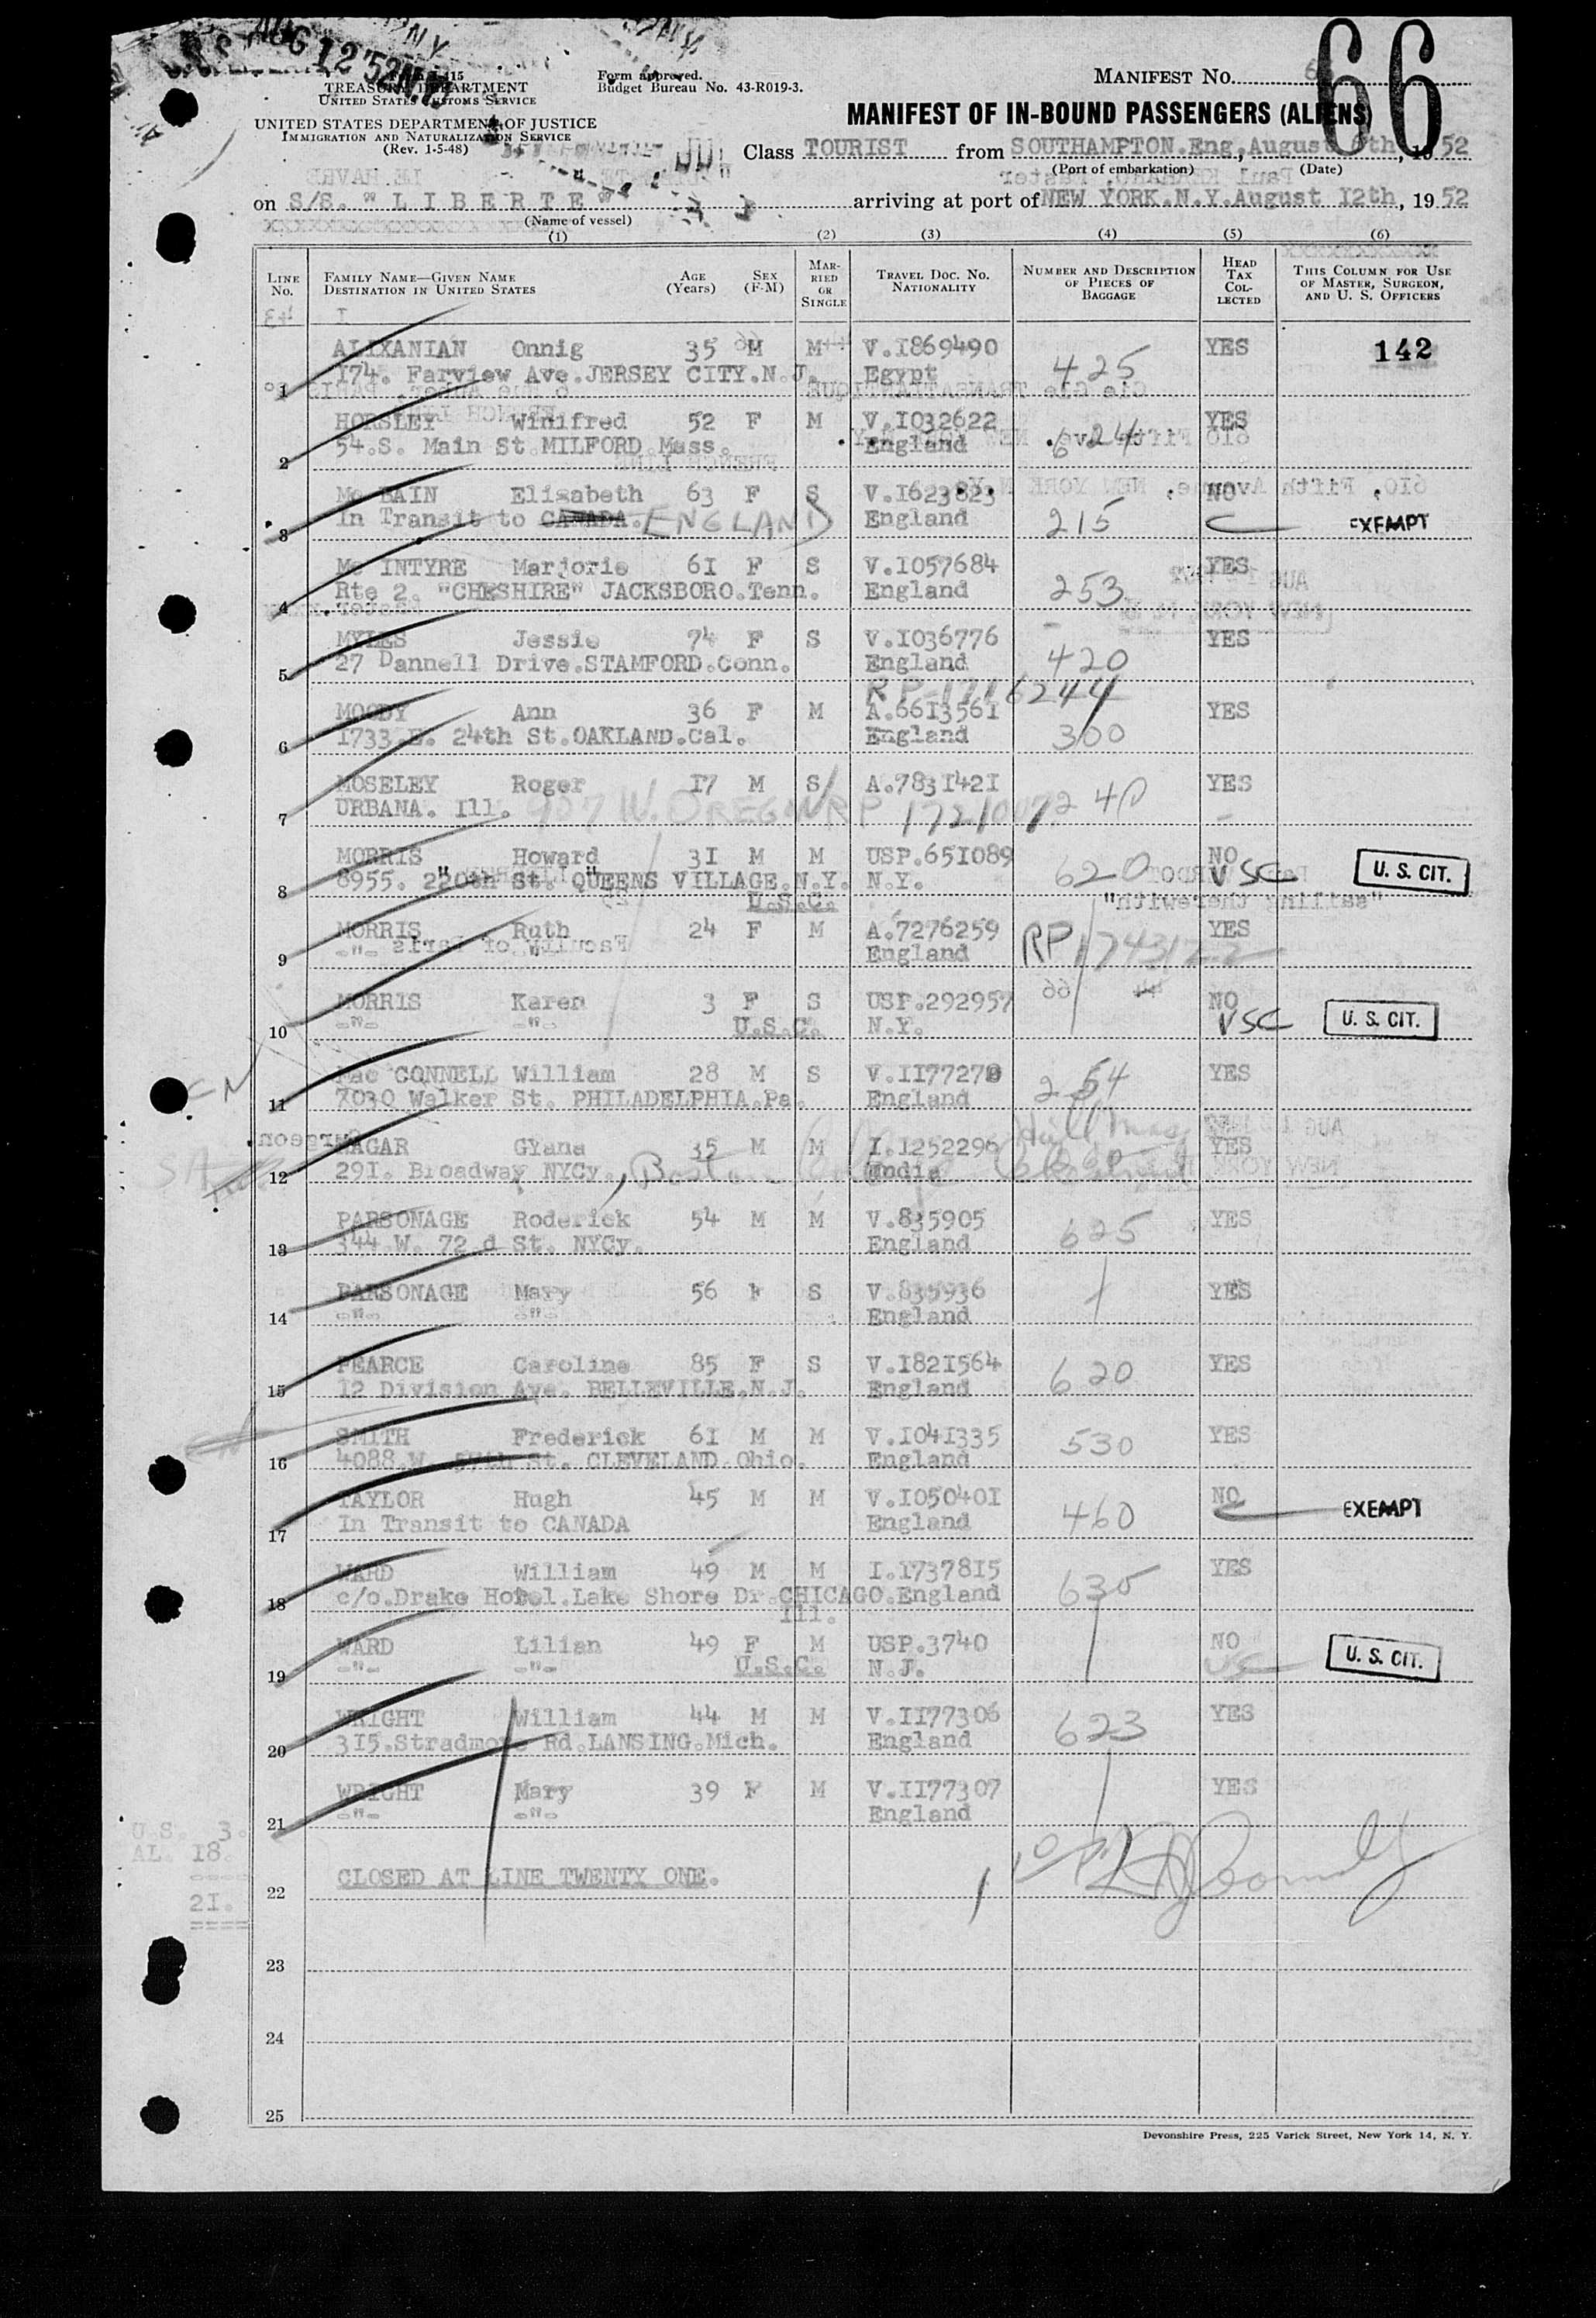 AUG 12 '52
66
Form I-415
TREASURY DEPARTMENT
UNITED STATES CUSTOMS SERVICE
UNITED STATES DEPARTMENT OF JUSTICE
IMMIGRATION AND NATURALIZATION SERVICE
(Rev. 1-5-48)
Form approved.
Budget Bureau No. 43-R019-3.
MANIFEST NO.
MANIFEST OF IN-BOUND PASSENGERS (ALIENS)
Class TOURIST from SOUTHAMPTON.Eng, August 6th, 1952
(Port of embarkation) (Date)
on S/S. "LIBERTE" arriving at port of NEW YORK.N.Y.August 12th, 1952
(Name of vessel)
(1) (2) (3) (4) (5) (6)
LINE No. FAMILY NAME—GIVEN NAME DESTINATION IN UNITED STATES AGE (Years) SEX (F-M) MARRIED OR SINGLE TRAVEL DOC. NO. NATIONALITY NUMBER AND DESCRIPTION OF PIECES OF BAGGAGE HEAD TAX COLLECTED THIS COLUMN FOR USE OF MASTER, SURGEON, AND U. S. OFFICERS
ALIXANIAN Onnig 35 M M V.I869490 YES 142
1 174. Farview Ave.JERSEY CITY.N.J. Egypt 425
HORSLEY Winifred 52 F M V.I032622 YES
2 54.S. Main St.MILFORD.Mass. England 624
Mc BAIN Elisabeth 63 F S V.I623823 NO
3 In Transit to CANADA. ENGLAND England 215 EXEMPT
Mc INTYRE Marjorie 61 F S V.I057684 YES
4 Rte 2. "CHESHIRE" JACKSBORO.Tenn. England 253
MYLES Jessie 74 F S V.I036776 YES
5 27 Dannell Drive.STAMFORD.Conn. England 420
RP 1716244
MOODY Ann 36 F M A.66I356I YES
6 I733.E. 24th St.OAKLAND.Cal. England 300
MOSELEY Roger 17 M S A.783I42I YES
7 URBANA. Ill. 907 W. OREGON RP 1721007 240
MORRIS Howard 3I M M USP.65I089 NO
8 8955. 220th St. QUEENS VILLAGE.N.Y. N.Y. 620 USC U. S. CIT.
U.S.C.
MORRIS Ruth 24 F M A.7276259 YES
9 -"- -"- England RP 1743122
MORRIS Karen 3 F S USP.292957 NO
10 -"- -"- U.S.C. N.Y. USC U. S. CIT.
Mac CONNELL William 28 M S V.II77278 YES
11 7030 Walker St. PHILADELPHIA.Pa. England 254
SAGAR GYana 35 M M I.I252296 YES
12 29I. Broadway NYCy. India
PARSONAGE Roderick 54 M M V.835905 YES
13 344.W. 72.d St. NYCy. England 625
PARSONAGE Mary 56 F S V.835936 YES
14 -"- -"- England
PEARCE Caroline 85 F S V.I82I564 YES
15 I2 Division Ave. BELLEVILLE.N.J. England 620
SMITH Frederick 61 M M V.I04I335 YES
16 4088.W. 57th St. CLEVELAND.Ohio. England 530
TAYLOR Hugh 45 M M V.I05040I NO
17 In Transit to CANADA England 460 EXEMPT
WARD William 49 M M I.I7378I5 YES
18 c/o.Drake Hotel.Lake Shore Dr.CHICAGO.England 635
Ill.
WARD Lilian 49 F M USP.3740 NO
19 -"- -"- U.S.C. N.J. U. S. CIT.
WRIGHT William 44 M M V.II77306 YES
20 3I5.Stradmore Rd.LANSING.Mich. England 623
WRIGHT Mary 39 F M V.II77307 YES
21 -"- -"- England
U.S. 3.
AL. 18.
21.
22 CLOSED AT LINE TWENTY ONE.
23
24
25
Devonshire Press, 225 Varick Street, New York 14, N. Y.